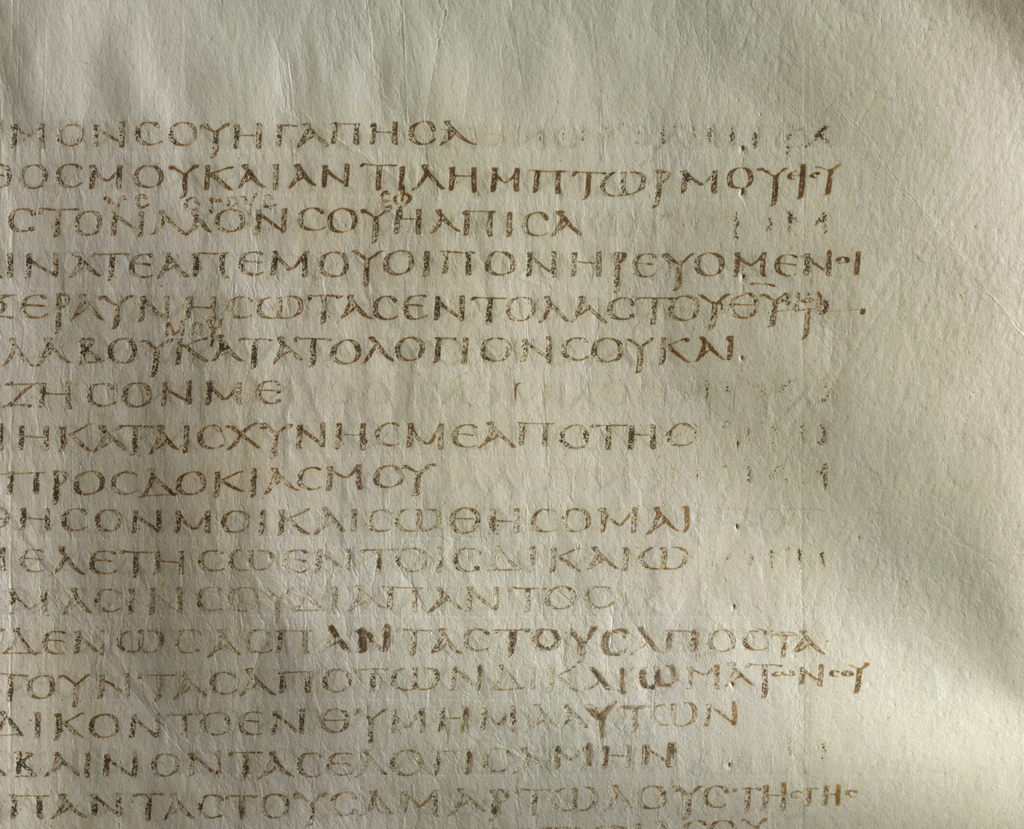 ΜΟΝϹΟΥΗΓΑΠΗϹΑ
ΘΟϹΜΟΥΚΑΙΑΝΤΙΛΗΜΠΤΩΡΜΟΥ
ϹΤΟΝΛΑΟΝϹΟΥΗΛΠΙϹΑ
ΙΝΑΤΕΑΠΕΜΟΥΟΙΠΟΝΗΡΕΥΟΜΕΝΟΙ
ΞΕΡΑΥΝΗϹΩΤΑϹΕΝΤΟΛΑϹΤΟΥΘΥ
ΜΟΥ
ΛΑΒΟΥΚΑΤΑΤΟΛΟΓΙΟΝϹΟΥΚΑΙ
ΖΗϹΟΝΜΕ
ΜΗΚΑΤΑΙϹΧΥΝΗϹΜΕΑΠΟΤΗϹ
ΠΡΟϹΔΟΚΙΑϹΜΟΥ
ΘΗϹΟΝΜΟΙΚΑΙϹΩΘΗϹΟΜΑΙ
ΜΕΛΕΤΗϹΩΕΝΤΟΙϹΔΙΚΑΙΩ
ΜΑϹΙΝϹΟΥΔΙΑΠΑΝΤΟϹ
ΔΕΝΩϹΑϹΠΑΝΤΑϹΤΟΥϹΑΠΟϹΤΑ
ΤΟΥΝΤΑϹΑΠΟΤΩΝΔΙΚΑΙΩΜΑΤΩΝϹΟΥ
ΔΙΚΟΝΤΟΕΝΘΥΜΗΜΑΑΥΤΩΝ
ΒΑΙΝΟΝΤΑϹΕΛΟΓΙϹΑΜΗΝ
ΠΑΝΤΑϹΤΟΥϹΑΜΑΡΤΩΛΟΥϹΤΗϹΓΗϹ